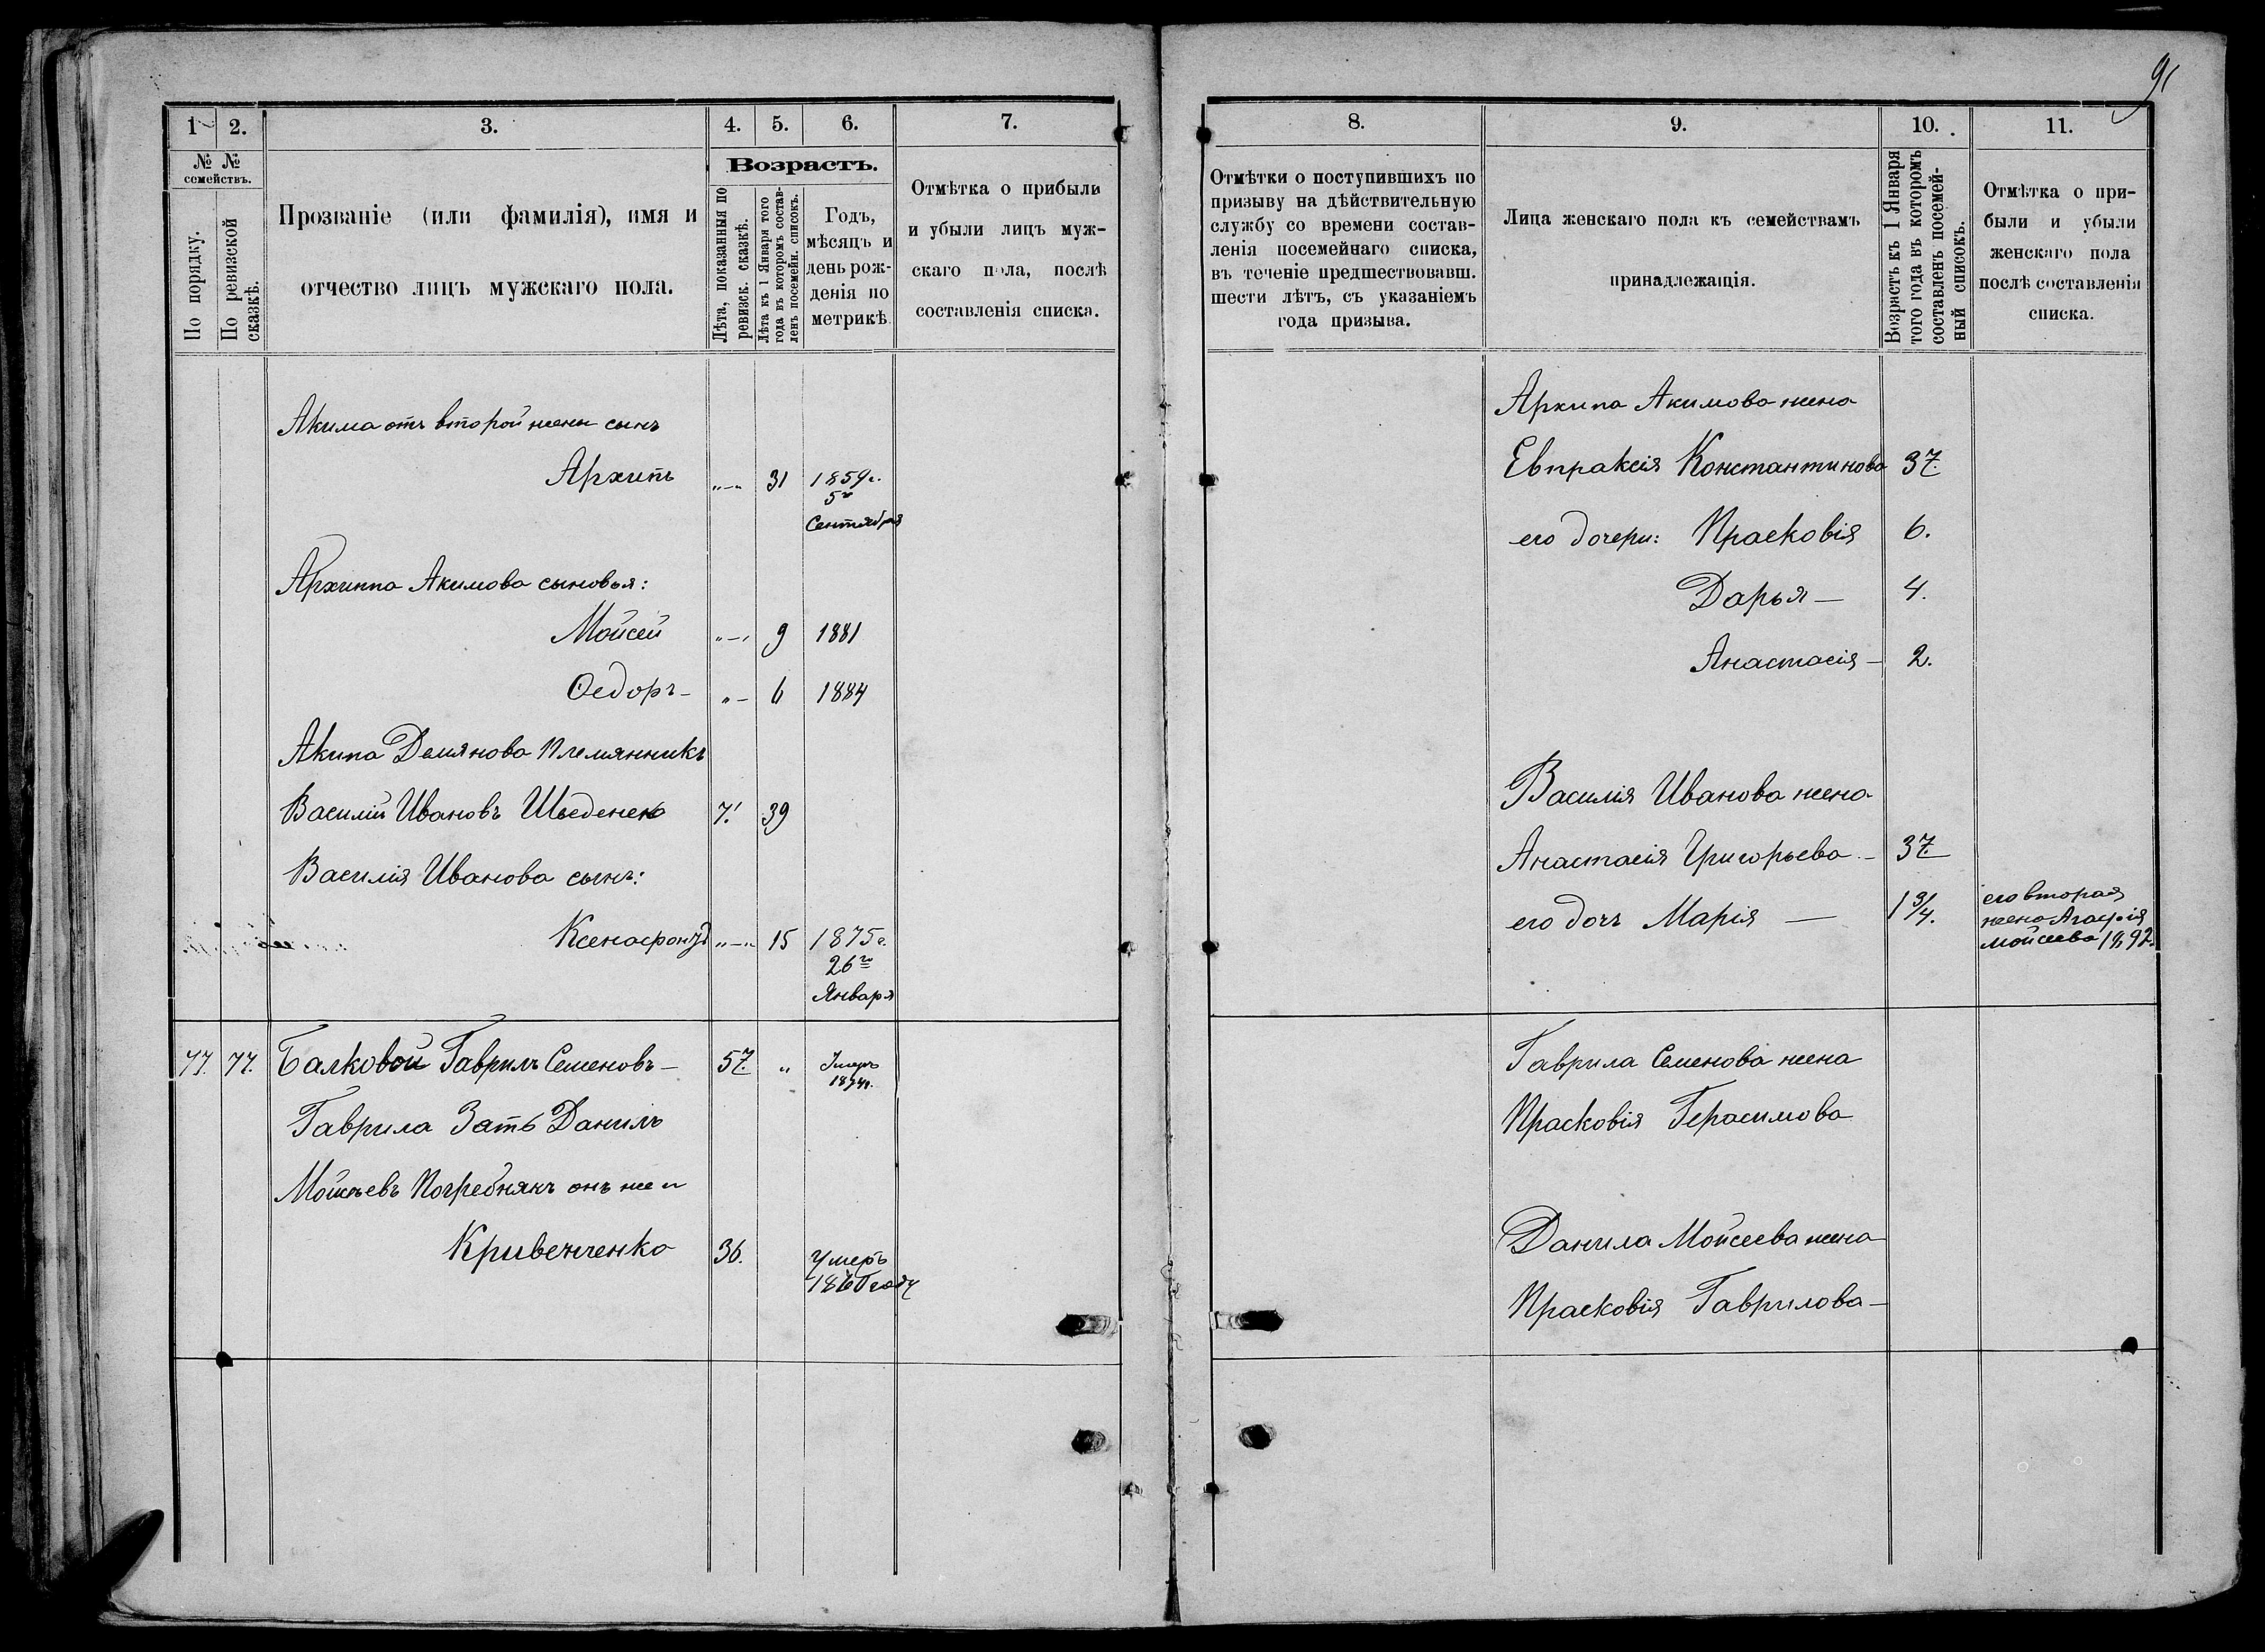 91
1 2. 3. 4. 5. 6. 7.
№ № семействъ.
По порядку.
По ревизской сказкѣ.
Прозваніе (или фамилія), имя и
отчество лицъ мужскаго пола.
Возрастъ.
Лѣта, показанныя по ревизск. сказкѣ.
Лѣта къ 1 Января того года въ которомъ составленъ посемейн. списокъ.
Годъ,
мѣсяцъ и
день рож-
денія по
метрикѣ
Отмѣтка о прибыли
и убыли лицъ муж-
скаго пола, послѣ
составленія списка.
Акима отъ второй жены сынъ
Архипъ „—„ 31 1859 г.
5го
Сентября
Архиппа Акимова сыновья:
Мойсей „—„ 9 1881
Ѳедоръ — „— 6 1884
Акипа Демянова племянникъ
Василій Ивановъ 7. 39
Василія Иванова сынъ:
Ксенофонтъ „—„ 15 1875 г.
26го
Января
77. 77. Балковой Гаврилъ Семеновъ — 57. „ Умеръ
Гаврила Зать Данилъ
Мойсѣевъ Погребнякъ онъ же и
Кривенченко 36. Умеръ
году
8. 9. 10. 11.
Отмѣтки о поступившихъ по
призыву на дѣйствительную
службу со времени состав-
ленія посемейнаго списка,
въ теченіе предшествовавш.
шести лѣтъ, съ указаніемъ
года призыва.
Лица женскаго пола къ семействамъ
принадлежащія.
Возрастъ къ 1 Января
того года въ которомъ
составленъ посемей-
ный списокъ.
Отмѣтка о при-
были и убыли
женскаго пола
послѣ составленія
списка.
Архипа Акимова жена
Евпраксія Константинова 37.
его дочери: Прасковія 6.
Дарья — 4.
Анастасія — 2.
Василія Иванова жена
Анастасія Григорьева — 37.
его дочь Марія — 1 3/4.
его вторая
жена
Мойсеева 1892.
Гаврила Семенова жена
Прасковія Герасимова
Данила Мойсеева жена
Прасковія Гаврилова —